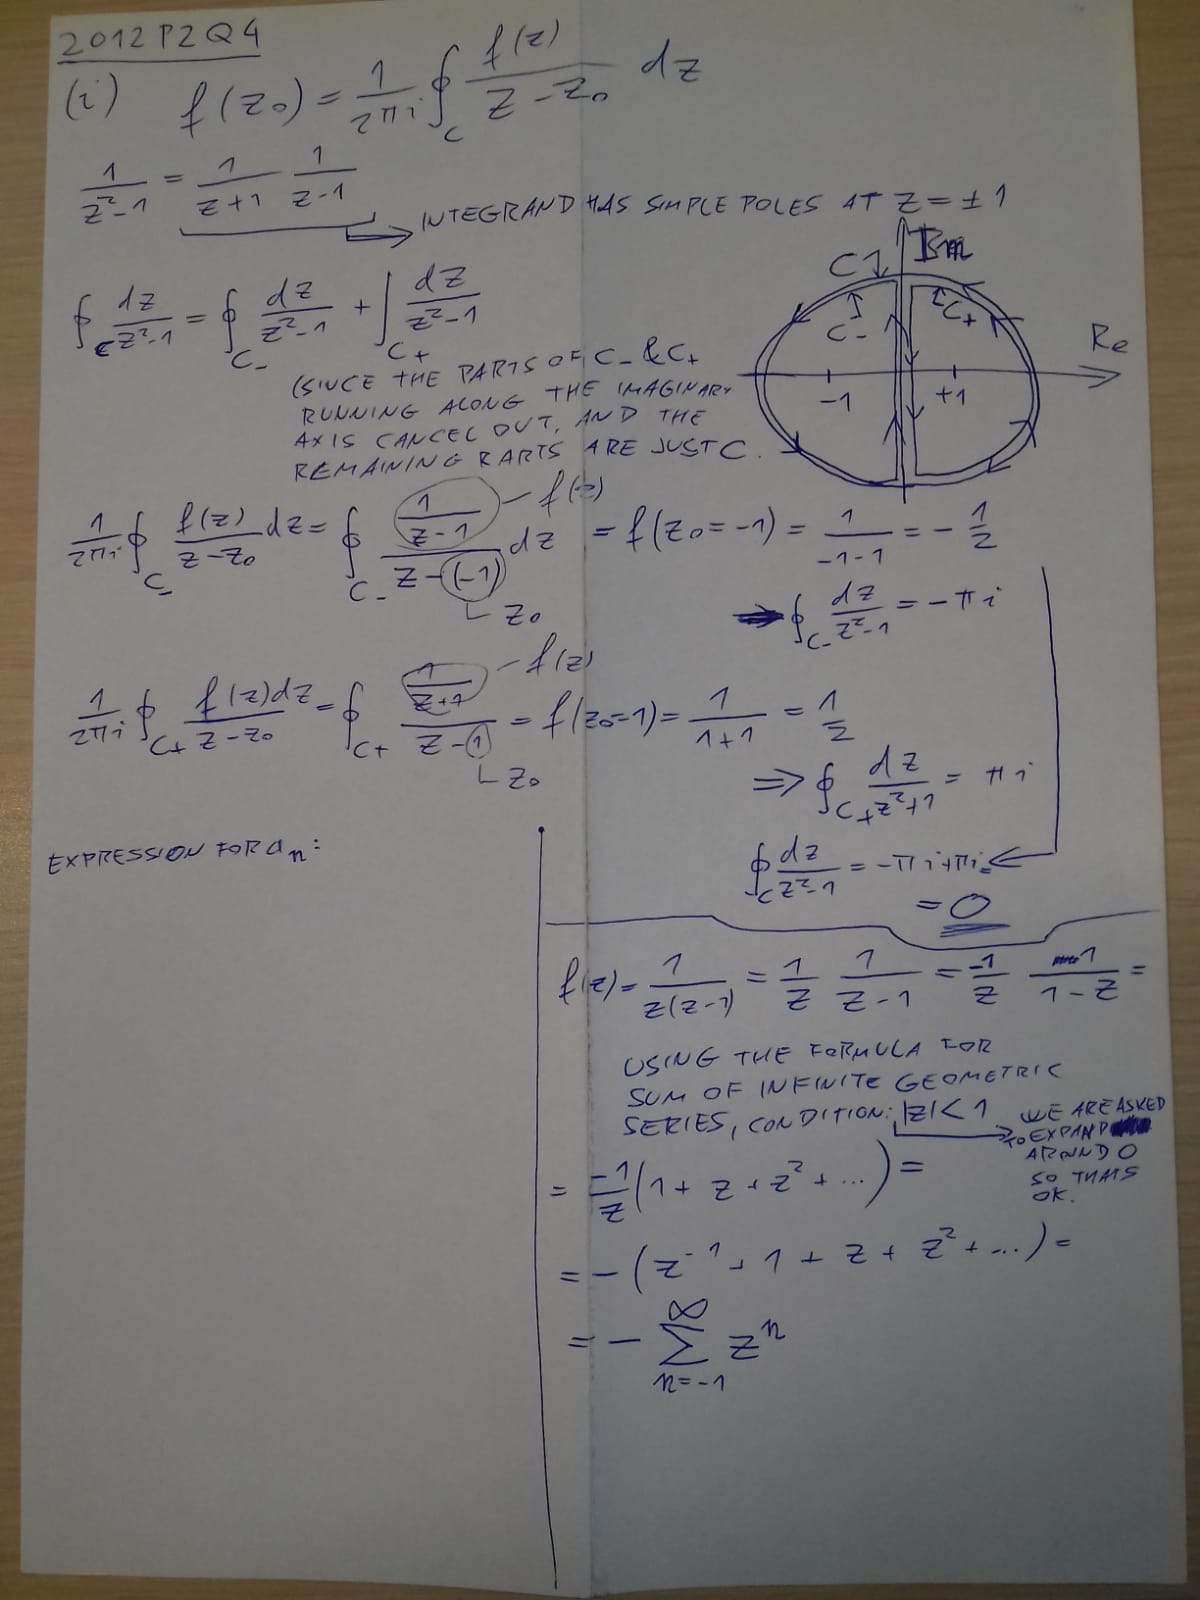 2012 P2 Q4
(i) f(z₀) = 1/2πi ∮_C f(z)/z-z₀ dz
1/z²-1 = 1/z+1 1/z-1
INTEGRAND HAS SIMPLE POLES AT z = ±1
C Im
C- C+
Re
-1 +1
∮_C dz/z²-1 = ∮_C- dz/z²-1 + ∫_C+ dz/z²-1
(SINCE THE PARTS OF C- & C+
RUNNING ALONG THE IMAGINARY
AXIS CANCEL OUT, AND THE
REMAINING PARTS ARE JUST C.
1/2πi ∮_C- f(z)/z-z₀ dz = ∮_C- (1/z-1)/z-(-1) dz = f(z₀=-1) = 1/-1-1 = -1/2
f(z)
z₀
⇒ ∮_C- dz/z²-1 = -πi
1/2πi ∮_C+ f(z)dz/z-z₀ = ∮_C+ (1/z+1)/z-1 = f(z₀=1) = 1/1+1 = 1/2
f(z)
z₀
⇒ ∮_C+ dz/z²+1 = πi
∮_C dz/z²-1 = -πi+πi=
= 0
EXPRESSION FOR aₙ:
f(z) = 1/z(z-1) = 1/z 1/z-1 = -1/z 1/1-z =
USING THE FORMULA FOR
SUM OF INFINITE GEOMETRIC
SERIES, CONDITION: |z|<1
WE ARE ASKED
TO EXPAND
AROUND 0
SO THATS
OK.
= -1/z (1 + z + z² + ...) =
= -(z⁻¹ + 1 + z + z² + ...) =
= - ∑_{n=-1}^{∞} zⁿ